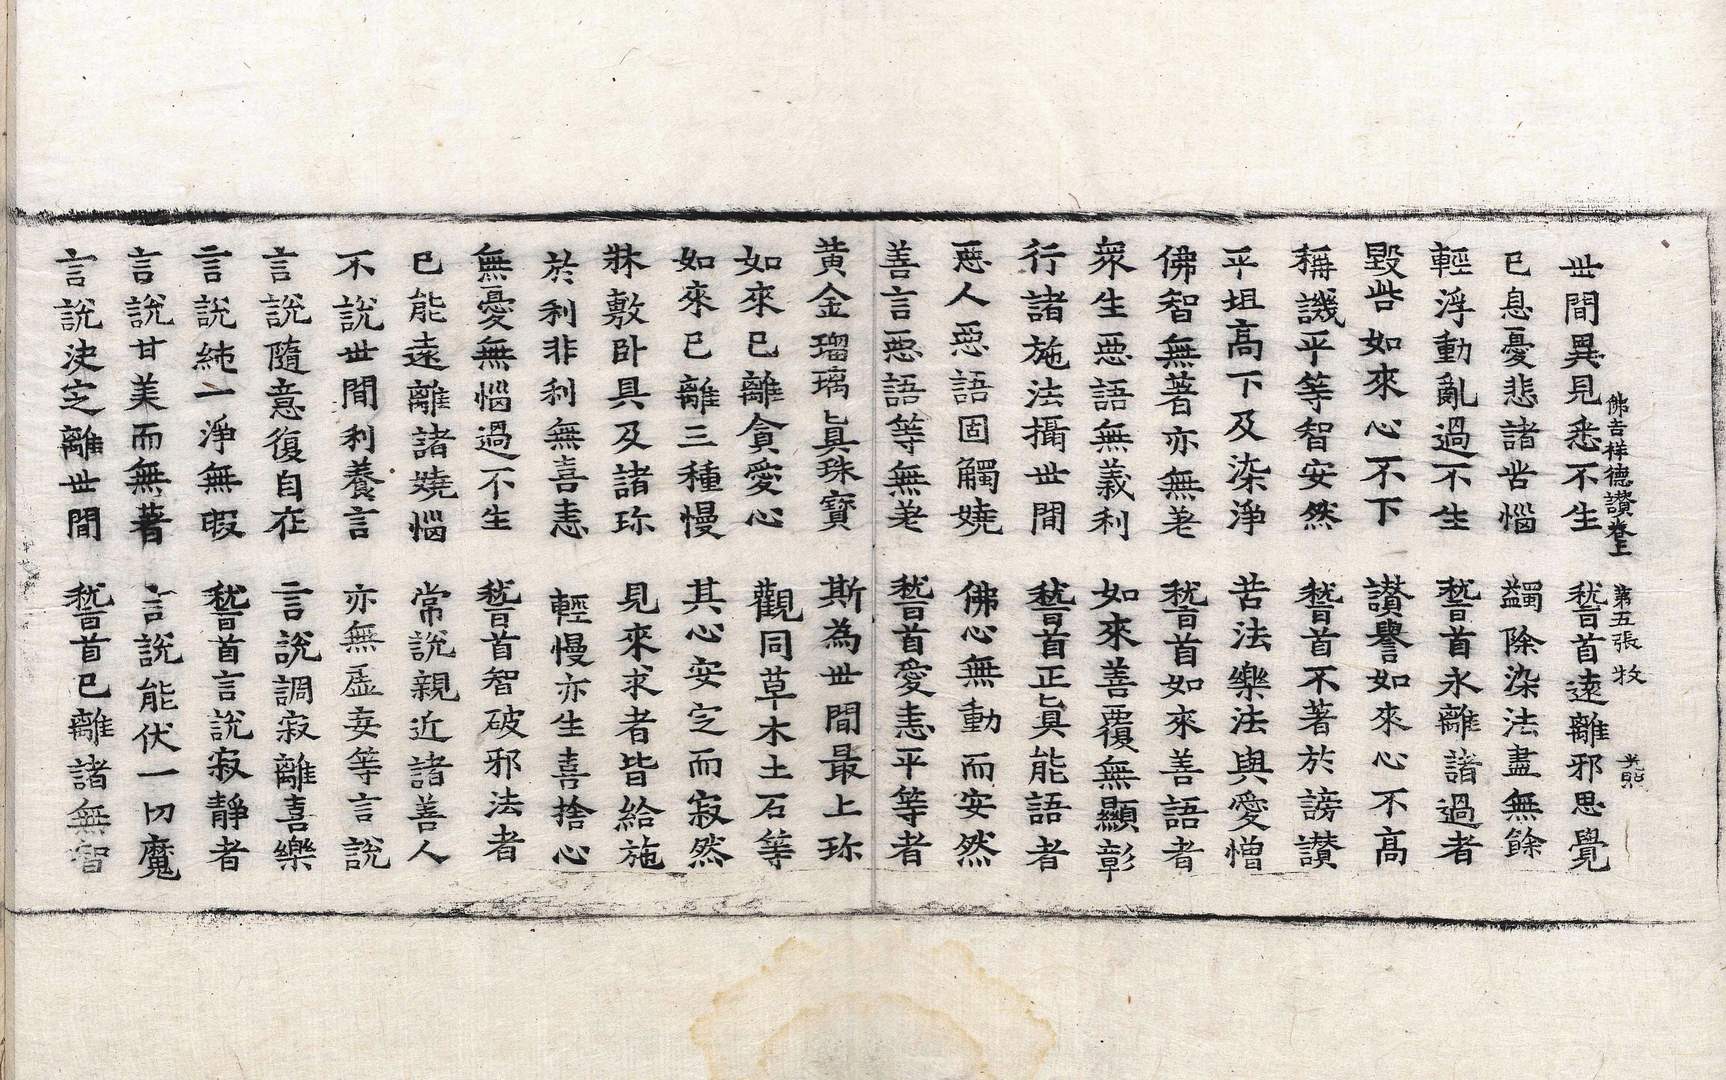 佛吉祥德讃卷上　第五張　牧
世間異見悉不生　䭬首遠離邪思覺
已息憂悲諸苦惱　蠲除染法盡無餘
輕浮動亂過不生　䭬首永離諸過者
毀呰如來心不下　讃譽如來心不高
稱譏平等智安然　䭬首不著於謗讃
平坦高下及染淨　苦法樂法與愛憎
佛智無著亦無差　䭬首如來善語者
衆生惡語無義利　如來善覆無顯彰
行諸施法攝世間　䭬首正眞能語者
惡人惡語固觸嬈　佛心無動而安然
善言惡語等無差　䭬首愛恚平等者
黃金瑠璃眞珠寶　斯為世間最上珎
如來已離貪愛心　觀同草木土石等
如來已離三種慢　其心安定而寂然
牀敷卧具及諸珎　見來求者皆給施
於利非利無喜恚　輕慢亦生喜捨心
無憂無惱過不生　䭬首智破邪法者
已能遠離諸嬈惱　常說親近諸善人
不說世間利養言　亦無虛妄等言說
言說隨意復自在　言說調寂離喜樂
言說純一淨無暇　䭬首言說寂靜者
言說甘美而無著　言說能伏一切魔
言說决定離世間　䭬首已離諸無智